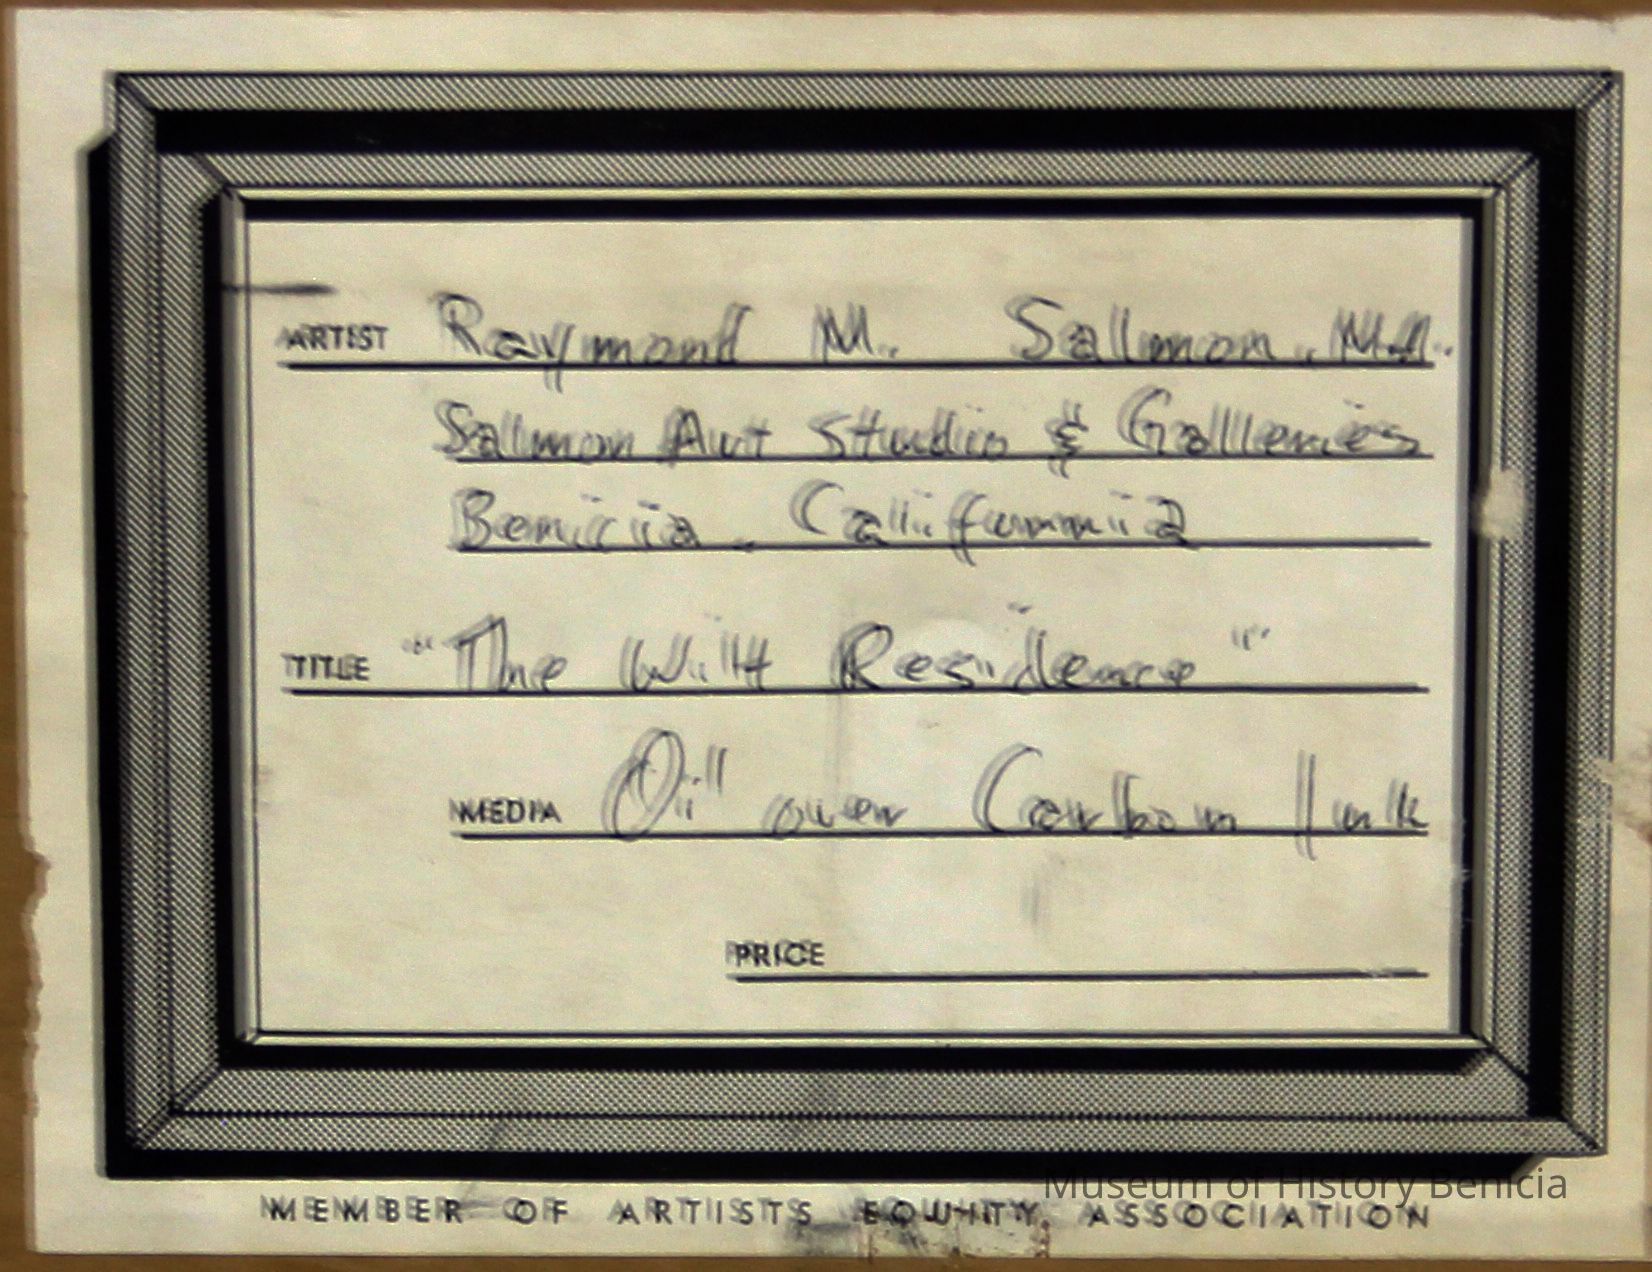 ARTIST Raymond M. Salmon, M.A.
Salmon Art Studio & Galleries
Benicia, California
TITLE "The Wilt Residence"
MEDIA Oil over Carbon Ink
PRICE
MEMBER OF ARTISTS EQUITY ASSOCIATION
Museum of History Benicia